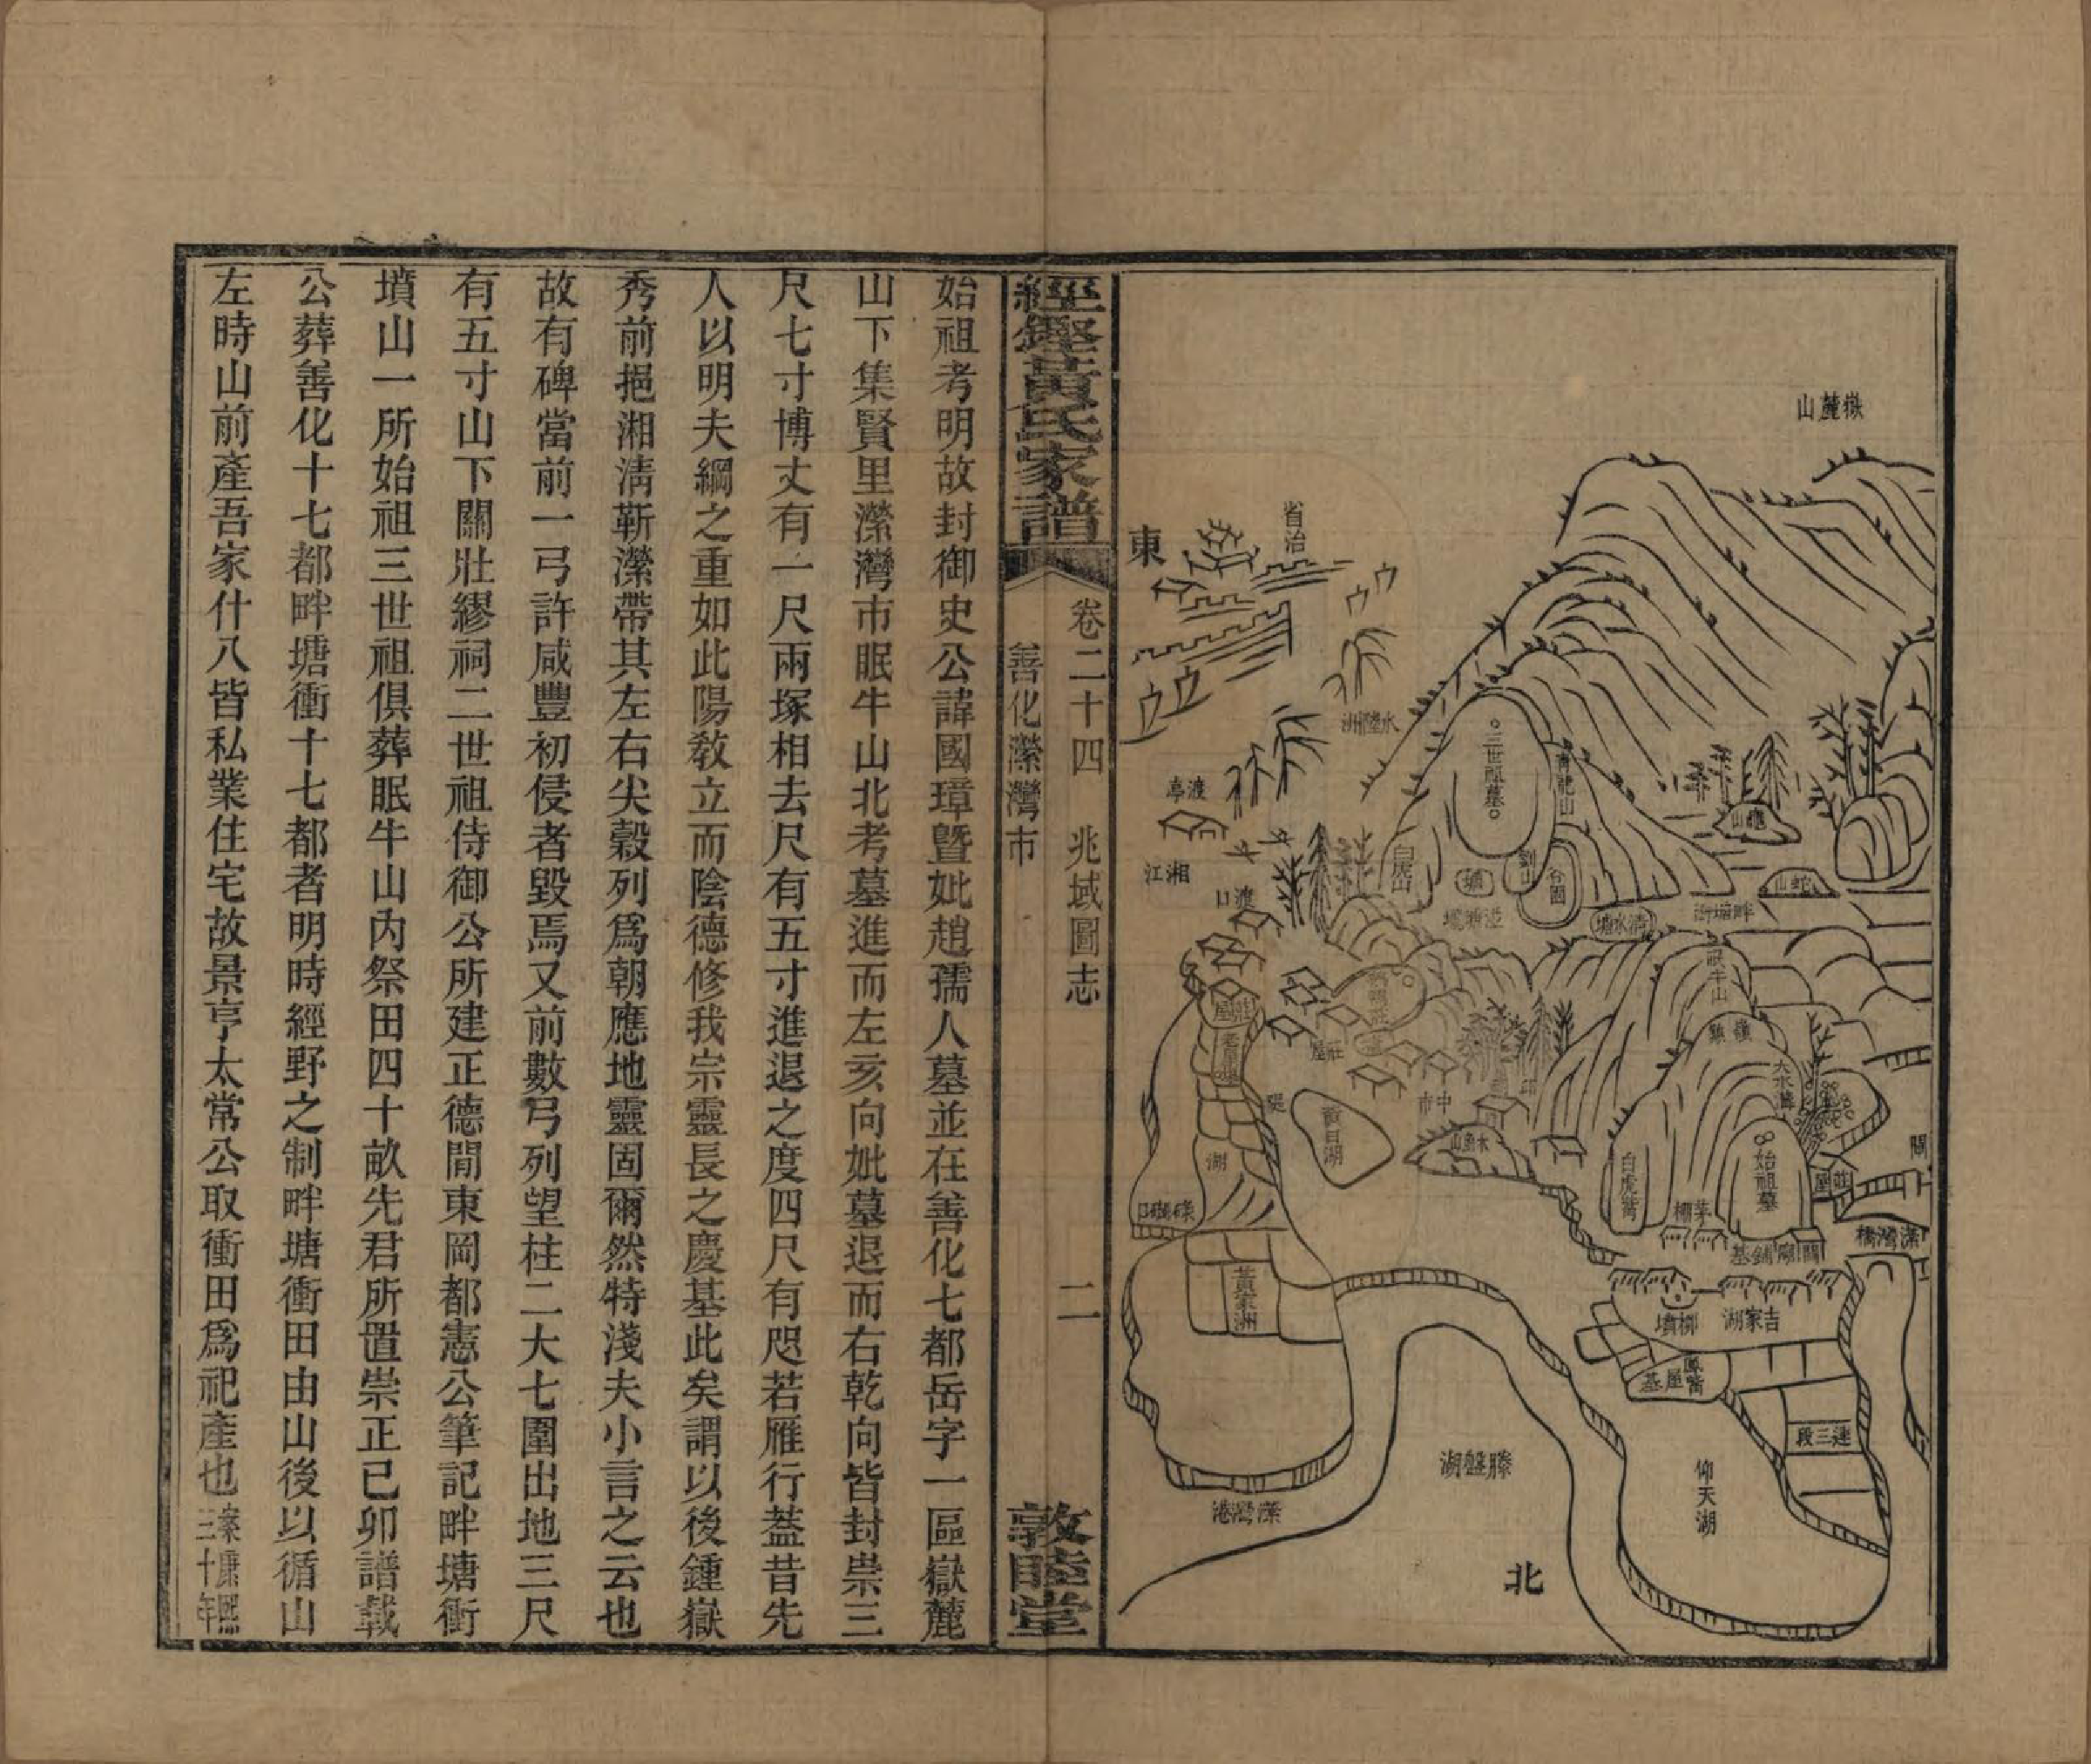 嶽麓山
省治
東
水陸洲
渡口
湘江
三世祖墓
白虎山
龜山
蛇山
清水塘
畔塘衝
眠牛山
大水溝
始祖墓
白虎嘴
莊屋
莊屋
中市
木魚山
黃泥湖
湖
茅柵
關廟鋪基
濚灣橋
柳墳
吉家湖
鳳嘴
屋基
連三段
仰天湖
滕盤湖
濚灣港
黃家洲
北
經鏗黃氏家譜
卷二十四 兆域圖志
善化濚灣市
二
敦睦堂
始祖考明故封御史公諱國璋暨妣趙孺人墓並在善化七都岳字一區嶽麓
山下集賢里濚灣市眠牛山北考墓進而左亥向妣墓退而右乾向皆封祟三
尺七寸博丈有一尺兩塚相去尺有五寸進退之度四尺有咫若雁行蓋昔先
人以明夫綱之重如此陽教立而陰德修我宗靈長之慶基此矣謂以後鍾嶽
秀前挹湘淸靳濚帶其左右尖穀列爲朝應地靈固爾然特淺夫小言之云也
故有碑當前一弓許咸豐初侵者毀焉又前數弓列望柱二大七圍出地三尺
有五寸山下關壯繆祠二世祖侍御公所建正德閒東岡都憲公筆記畔塘衝
墳山一所始祖三世祖俱葬眠牛山內祭田四十畝先君所置崇正已卯譜載
公葬善化十七都畔塘衝十七都者明時經野之制畔塘衝田由山後以循山
左時山前產吾家什八皆私業住宅故景亨太常公取衝田爲祀產也案康熙三十年